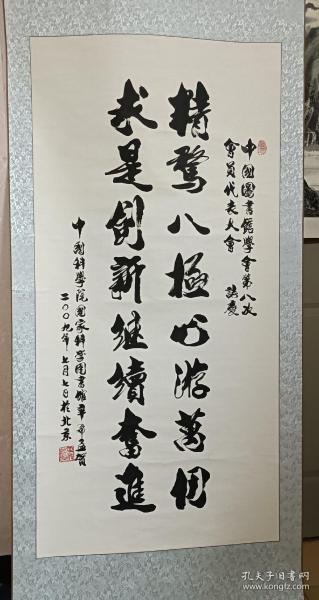 中國圖書館學會第八次
會員代表大會 誌慶
精騖八極心游萬仞
求是創新继續奮進
中國科學院國家科學图書館
二〇〇九年七月七日於北京
孔夫子旧书网